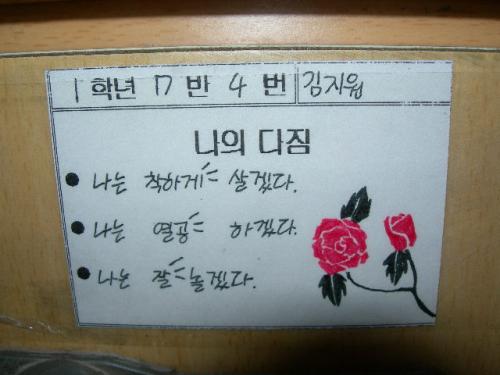 1 학년 17 반 4 번 김지원
나의 다짐
• 나는 착하게 살겠다.
• 나는 열공 하겠다.
• 나는 잘 놀겠다.